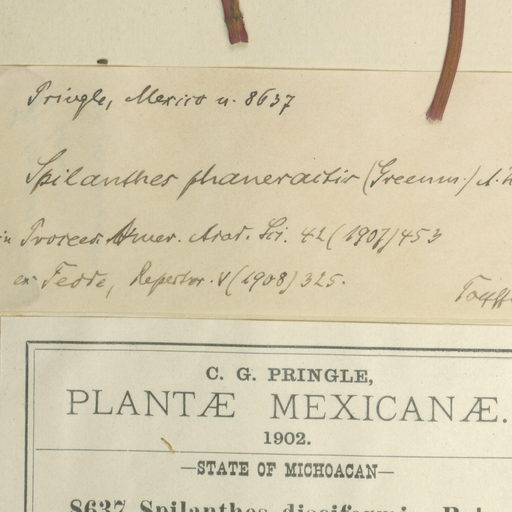 Pringle, Mexico n. 8637
Spilanthes phaneractis (Greenm.) A. H
in Proceed. Amer. Acad. Sci. 42 (1907) 453
ex Fedde, Repertor. V (1908) 325.
C. G. PRINGLE,
PLANTÆ MEXICANÆ.
1902.
—STATE OF MICHOACAN—
8637 Spilanthes